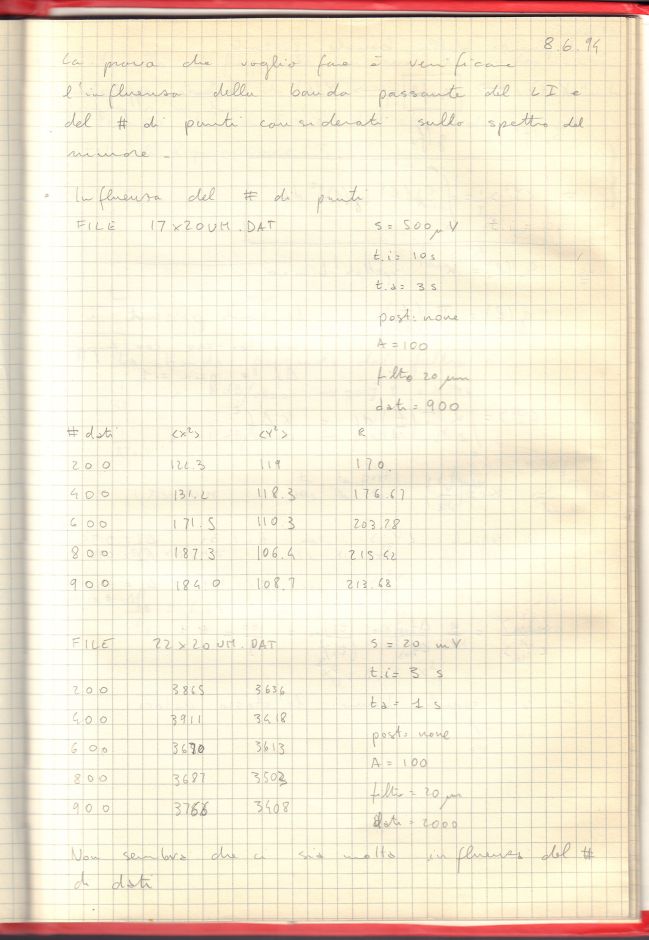 8.6.94
La prova che voglio fare è verificare
l'influenza della banda passante del LI e
del # di punti considerati sullo spettro del
rumore -
Influenza del # di punti
FILE 17x20UM.DAT s = 500 μV
t.i = 10 s
t.a = 3 s
post: none
A = 100
filtro 20 μm
dati = 900
# dati <x²> <y²> R
200 122.3 119 170.
400 131.2 118.3 176.67
600 171.5 110.3 203.28
800 187.3 106.4 215.42
900 184.0 108.7 213.68
FILE 22x20UM.DAT S = 20 mV
t.i = 3 s
200 3865 3636
ta = 1 s
400 3911 3418
post: none
600 3670 3613
A = 100
800 3687 3503
filtro = 20 μm
900 3766 3408
dati = 2000
Non sembra che ci sia molta influenza del #
di dati